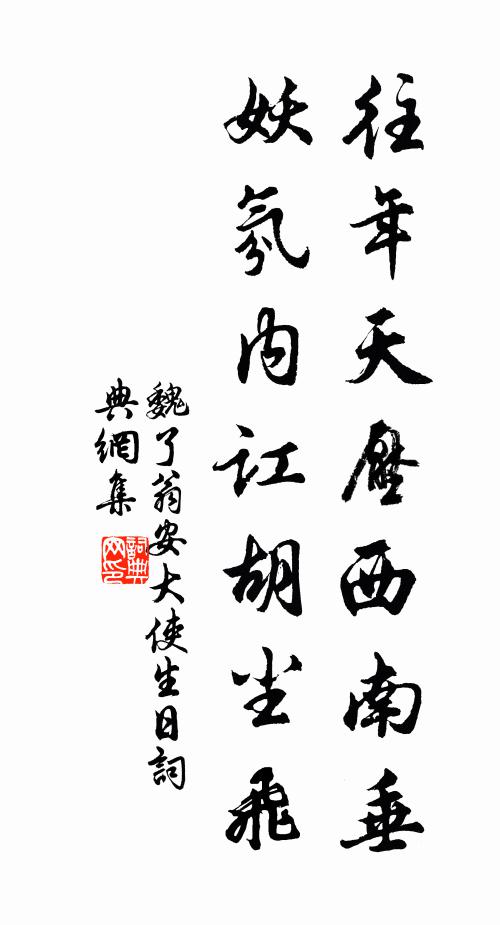 往年天壓西南垂
妖氛內訌胡尘飛
魏了翁安大使生日詞
典網集
詞典
网印